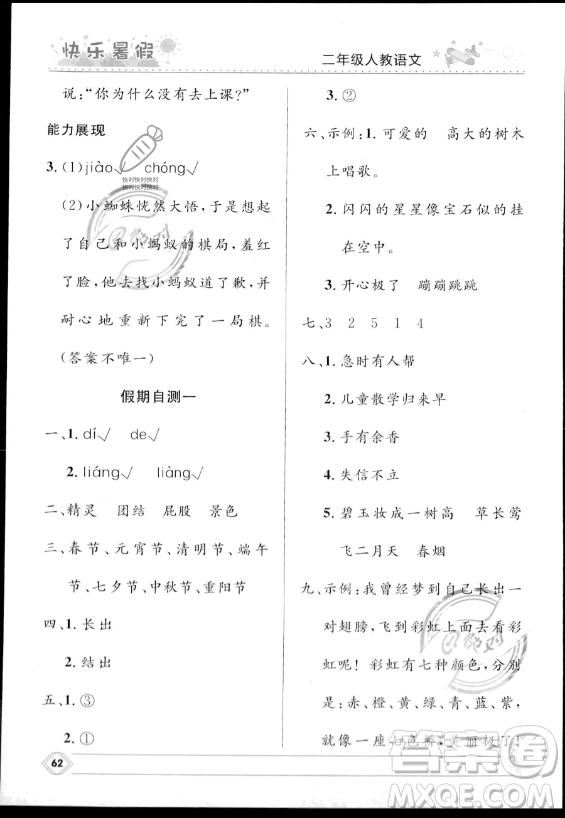 快乐暑假
二年级人教语文
说:“你为什么没有去上课?”
能力展现
3.(1)jiào√ chóng√
(2)小蜘蛛恍然大悟,于是想起
了自己和小蚂蚁的棋局,羞红
了脸,他去找小蚂蚁道了歉,并
耐心地重新下完了一局棋。
(答案不唯一)
快对快对快对
快对快对快对
假期自测一
一、1. dí√ de√
2. liáng√ liàng√
二、精灵 团结 屁股 景色
三、春节、元宵节、清明节、端午
节、七夕节、中秋节、重阳节
四、1.长出
2.结出
五、1.③
2.①
62
3.②
六、示例:1.可爱的 高大的树木
上唱歌。
2.闪闪的星星像宝石似的挂
在空中。
3.开心极了 蹦蹦跳跳
七、3 2 5 1 4
八、1.急时有人帮
2.儿童散学归来早
3.手有余香
4.失信不立
5.碧玉妆成一树高 草长莺
飞二月天 春烟
九、示例:我曾经梦到自己长出一
对翅膀,可以飞到彩虹上面去看
彩虹呢!彩虹有七种颜色,分别
是:赤、橙、黄、绿、青、蓝、紫,
就像一座七色桥,美丽极了!
答案圈
MXQE.COM